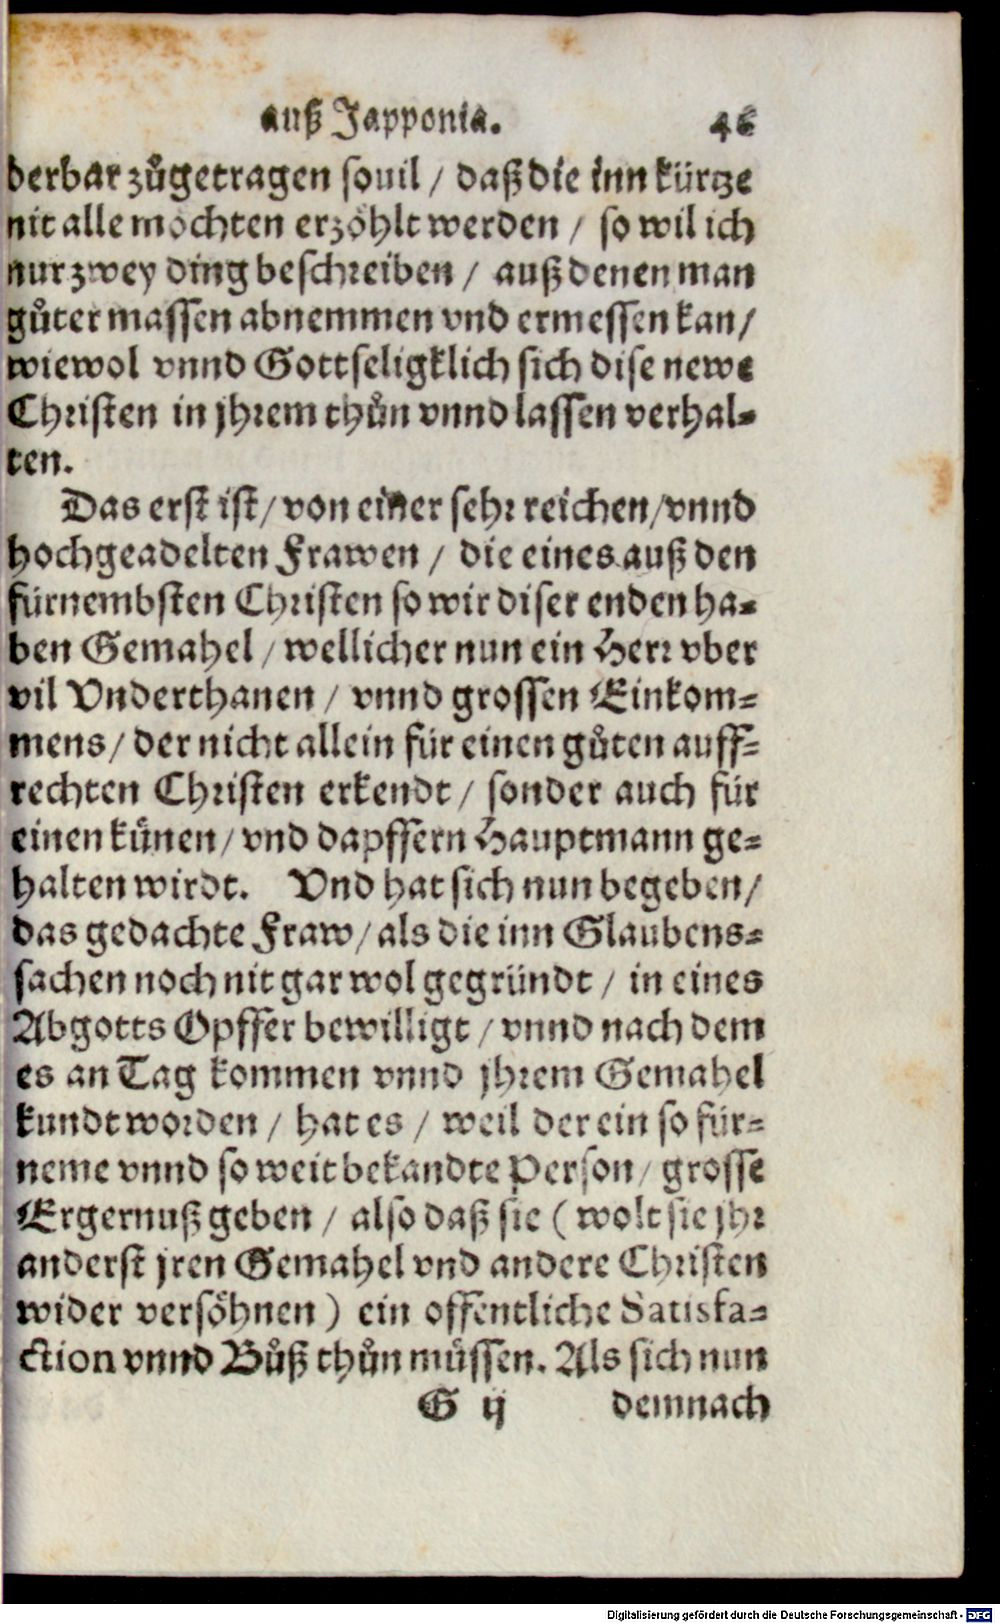 auß Japponia. 46
derbar zůgetragen souil / daß die inn kürtze
nit alle möchten erzöhlt werden / so wil ich
nur zwey ding beschreiben / auß denen man
gůter massen abnemmen vnd ermessen kan /
wiewol vnnd Gottseligklich sich dise newe
Christen in jhrem thůn vnnd lassen verhal=
ten.
Das erst ist / von einer sehr reichen / vnnd
hochgeadelten Frawen / die eines auß den
fürnembsten Christen so wir diser enden ha=
ben Gemahel / wellicher nun ein Herr vber
vil Vnderthanen / vnnd grossen Einkom=
mens / der nicht allein für einen gůten auff=
rechten Christen erkendt / sonder auch für
einen künen / vnd dapffern Hauptmann ge=
halten wirdt. Vnd hat sich nun begeben /
das gedachte Fraw / als die inn Glaubens=
sachen noch nit gar wol gegründt / in eines
Abgotts Opffer bewilligt / vnnd nach dem
es an Tag kommen vnnd jhrem Gemahel
kundt worden / hat es / weil der ein so für=
neme vnnd so weit bekandte Person / grosse
Ergernuß geben / also daß sie ( wolt sie jhr
anderst jren Gemahel vnd andere Christen
wider versöhnen ) ein offentliche Satisfa=
ction vnnd Bůß thůn müssen. Als sich nun
G ij demnach
Digitalisierung gefördert durch die Deutsche Forschungsgemeinschaft - DFG